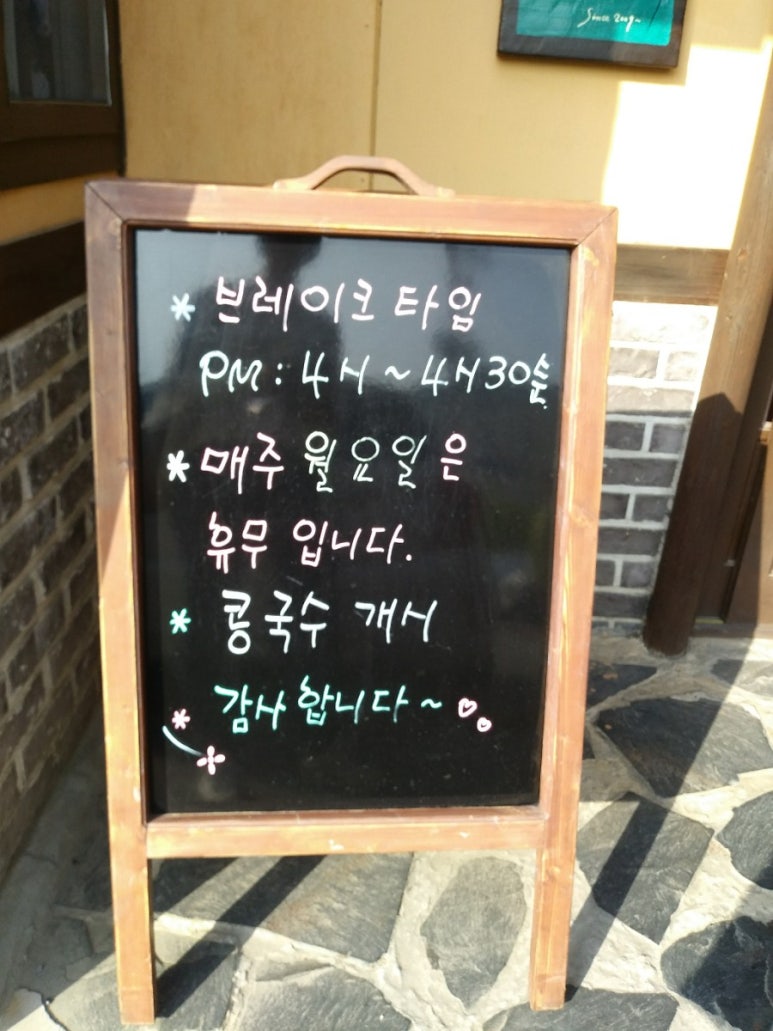 Since 2009~
* 브레이크 타임
PM : 4시 ~ 4시30분
* 매주 월요일은
휴무 입니다.
* 콩국수 개시
* 감사합니다~ ♡♡